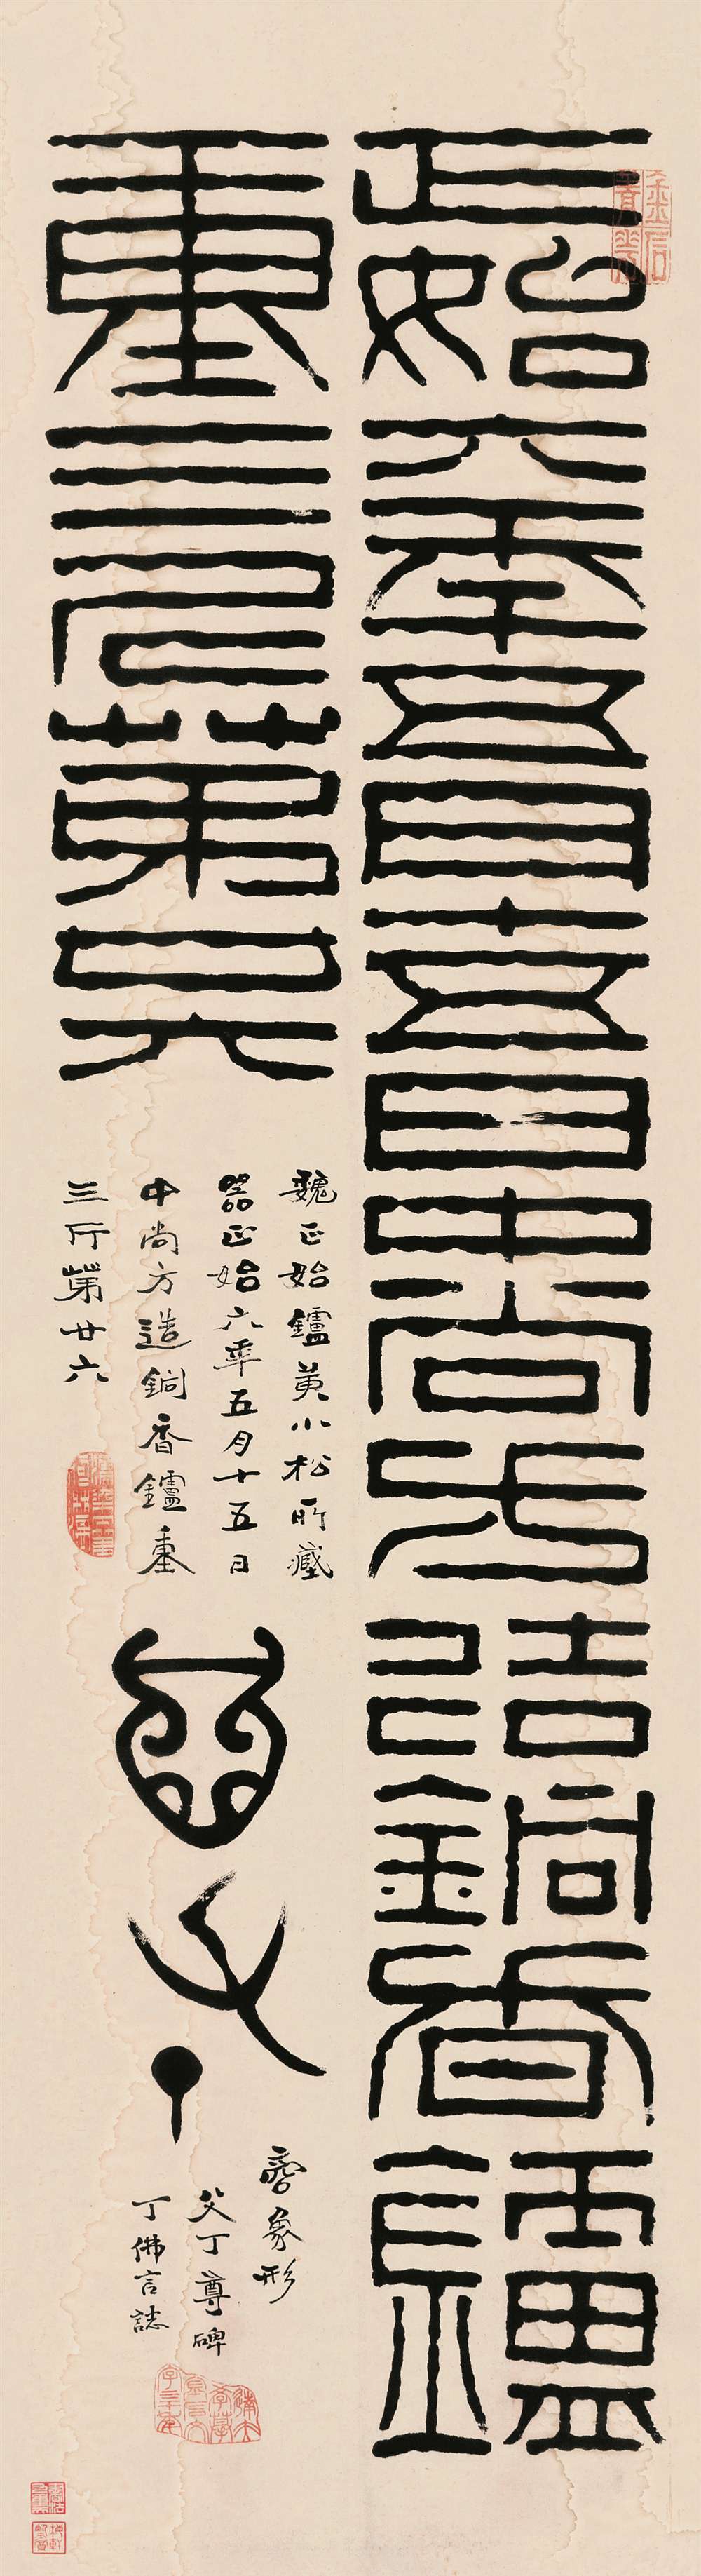 正始六年五月十五日中尚方造銅香鑪
重三斤第廿六
魏正始鑪黃小松所藏
器正始六年五月十五日
中尚方造銅香鑪重
三斤第廿六
父丁
象形
父丁尊碑
丁佛言誌